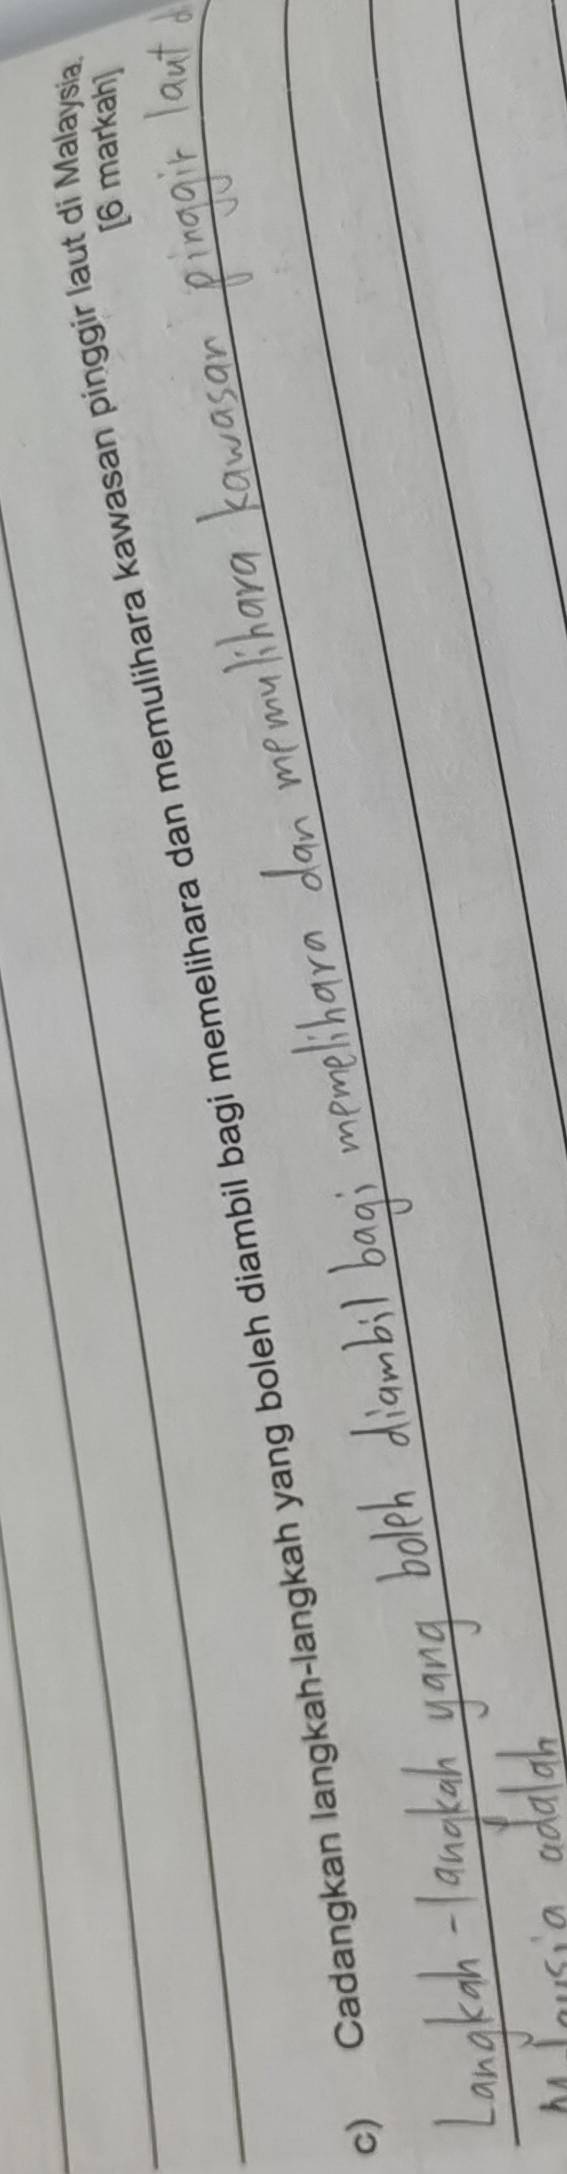 c) Cadangkan langkah-langkah yang boleh diambil bagi memelihara dan memulihara kawasan pinggir laut di Malaysia.
[6 markah]
Langkah-langkah yang boleh diambil bagi memelihara dan memulihara kawasan pinggir laut d
Malaysia adalah